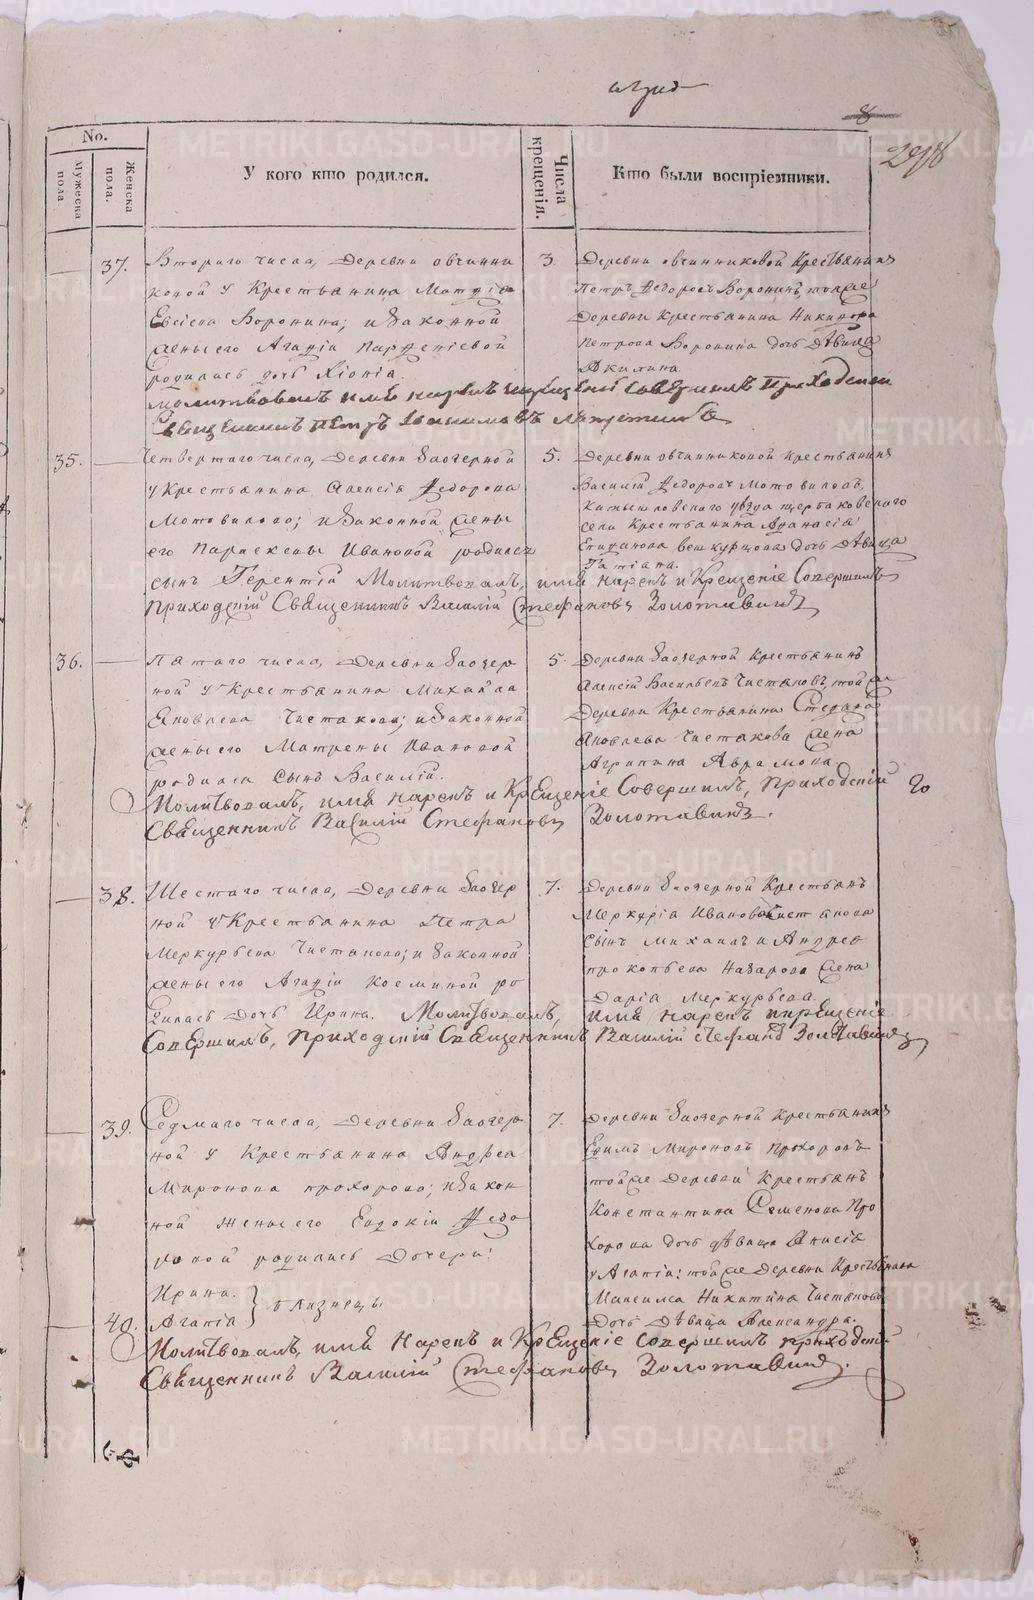 No.
Мужеска пола.
Женска пола.
У кого кто родился.
Числа крещенія.
Кто были воспріемники.
37.
Втораго числа, деревни овчинни
ковой у Крестьянина Матфіа
Евсіева Воронина; и законной
жены его Агафіи Парфеніевой
родилась дочь Хіонія.
3.
Деревни овчинниковой Крестьянинъ
Петръ Федоровъ Воронинъ тойже
деревни Крестьянина Никифора
Петрова Воронина дочь дѣвица
Акилина.
молитвовалъ имя нарекъ и крещеніе совершилъ Приходскій
Священникъ Петръ
35.
Четвертаго числа, деревни заозерной
у Крестьянина Алексія Федорова
Мотовилова; и законной жены
его Параскевы Ивановой родился
сынъ Терентій
5.
Деревни овчинниковой Крестьянинъ
Василій Федоровъ Мотовиловъ,
Камышловскаго уѣзда щербаковскаго
села Крестьянина Афанасія
Епифанова дочь дѣвица
Татіана.
Молитвовалъ, имя нарекъ и Крещеніе Совершилъ
Приходскій Священникъ Василій Стефановъ Золотавинъ
36.
Пятаго числа, деревни заозер
ной у Крестьянина Михайла
Яковлева Чистякова; и законной
жены его Матрены Ивановой
родился сынъ Василій.
5.
Деревни заозерной Крестьянинъ
Алексій Васильевъ Чистяковъ, тойже
деревни Крестьянина Стефана
Яковлева Чистякова жена
Агрипина Аврамова
Молитвовалъ, имя нарекъ и Крещеніе Совершилъ, Приходскій
Священникъ Василій Стефановъ Золотавинъ.
38.
Шестаго числа, деревни заозер
ной у Крестьянина Петра
Меркурьева Чистякова; и законной
жены его Агафіи Козминой ро
дилась дочь Ирина.
7.
Деревни заозерной Крестьянъ
Меркурія Иванова Чистякова
сынъ Михаилъ и Андрея
прокопьева Назарова жена
Дарія Меркурьева.
Молитвовалъ, имя нарекъ и крещеніе
Совершилъ, Приходскій Священникъ Василій Стефановъ Золотавинъ
39.
Седмаго числа, деревни заозер
ной у Крестьянина Андрея
Миронова прохорова; и закон
ной жены его Евдокіи Федо
ровой родились дочери:
Ирина.
близнецы
40.
Агапія
7.
Деревни заозерной Крестьянинъ
Ефимъ Мироновъ прохоровъ
тойже деревни Крестьянъ
Константина Семенова Про
хорова дочь дѣвица Анисія
у Агапіи: тойже деревни Крестьянина
Максима Никитина Чистякова
дочь дѣвица Александра.
Молитвовалъ, имя Нарекъ и Крещеніе совершилъ приходскій
Священникъ Василій Стефановъ Золотавинъ.
METRIKI.GASO-URAL.RU